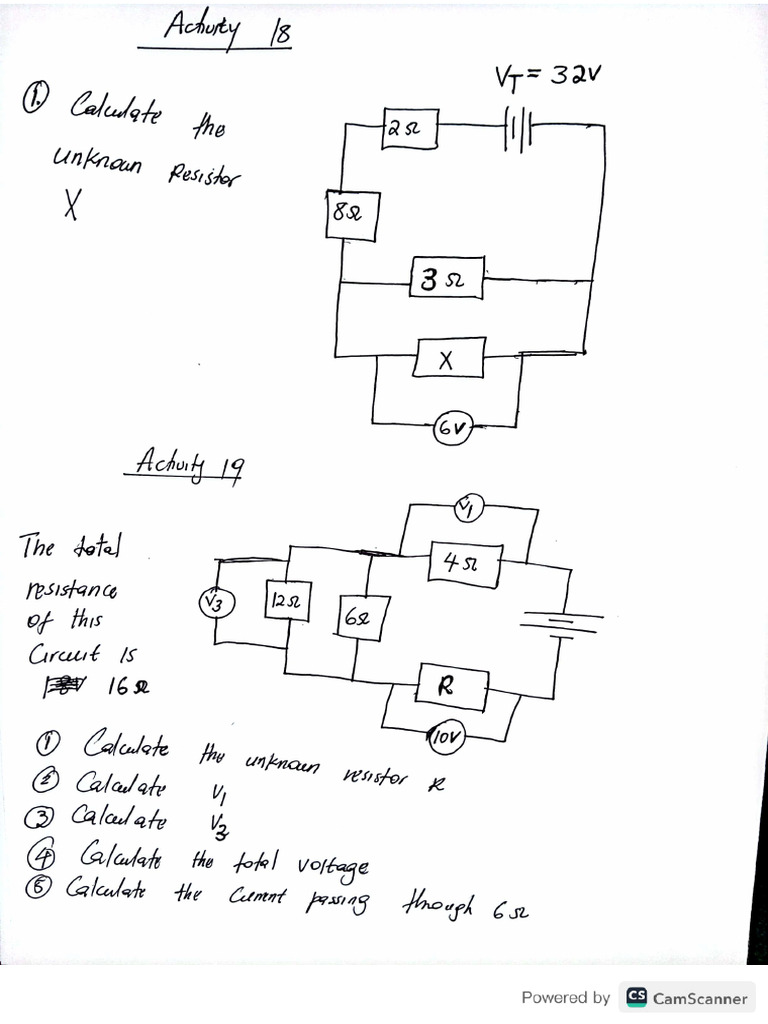 Activity 18
VT = 32V
① Calculate the
unknown Resistor
X
2Ω
8Ω
3Ω
X
6V
Activity 19
The total
resistance
of this
Circuit is
16Ω
V1
4Ω
V3
12Ω
6Ω
R
10V
① Calculate the unknown resistor R
② Calculate V1
③ Calculate V3
④ Calculate the total voltage
⑤ Calculate the Current passing through 6Ω
Powered by CS CamScanner